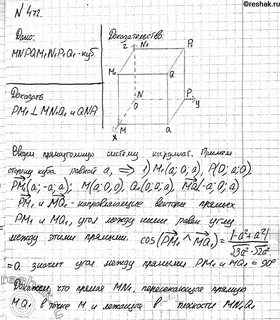 ©reshak.ru
N 472.
Дано:
MNPQM₁N₁P₁Q₁-куб
Доказать
PM₁⊥MN₁Q₁ и QNA
Доказательство:
z N₁ P₁
M₁ Q₁
N P
O y
M Q
x
Введем прямоугольную систему координат. Примем
сторону куба равной a, ⇒ 1) M₁(a; 0; a), P(0; a; 0)
PM₁(a; -a; a); M(a; 0; 0), Q₁(a; a; a) MQ₁(0; a; a)
PM₁ и MQ₁ - направляющие вектора прямых
PM₁ и MQ₁, угол между ними равен углу
между этими прямыми. cos(PM₁ ^ MQ₁) = |-a²+a²| / √3a²·√2a²
=0. значит угол между прямыми PM₁ и MQ₁ = 90°
Докажем, что прямая MN₁, пересекающая прямую
MQ₁ в точке M и лежащую в плоскости MN₁Q₁